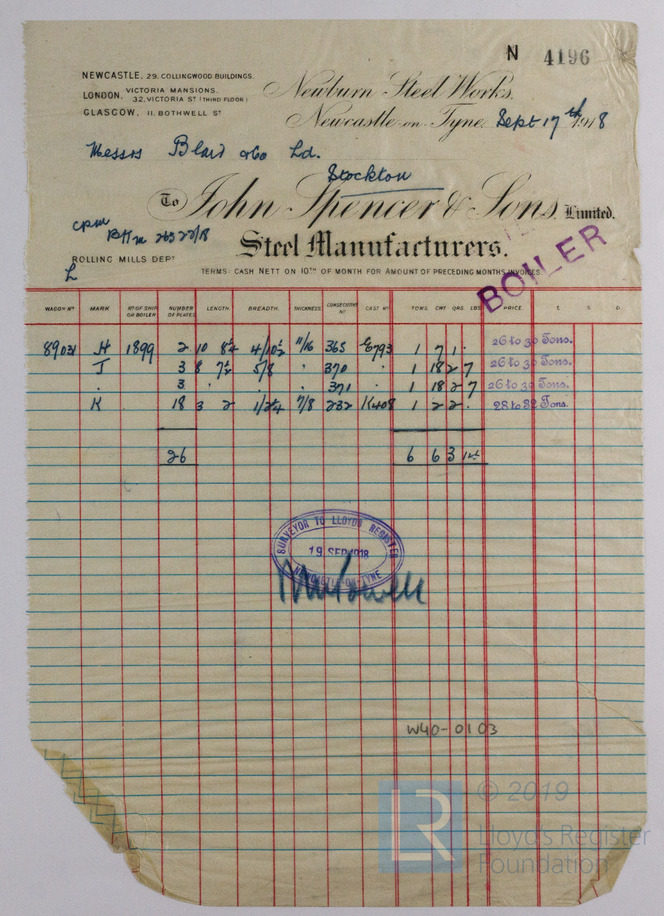 N 4196
NEWCASTLE, 29, COLLINGWOOD BUILDINGS.
LONDON, VICTORIA MANSIONS.
32, VICTORIA ST (THIRD FLOOR)
GLASGOW, 11, BOTHWELL ST
Newburn Steel Works,
Newcastle-on-Tyne, Sept 17th 1918
Messrs Blair & Co Ld.
Stockton
To John Spencer & Sons, Limited.
Steel Manufacturers.
ROLLING MILLS DEPT
TERMS: CASH NETT ON 10TH OF MONTH FOR AMOUNT OF PRECEDING MONTHS INVOICES.
BOILER
WAGON No MARK No OF SHIP OR BOILER NUMBER OF PLATES LENGTH. BREADTH. THICKNESS. CONSECUTIVE No CAST No TONS. CWT QRS. LBS. PRICE. £. S. D.
89031 H 1899 2 10 8¼ 4/10½ 11/16 365 E793 1 7 1 . 26 to 30 Tons.
J 3 8 7½ 5/8 " 370 1 18 2 7 26 to 30 Tons.
. 3 " 371 1 18 2 7 26 to 30 Tons.
K 18 3 2 1/2¼ 7/8 232 K408 1 2 2 . 28 to 32 Tons.
26 6 6 3 14
SURVEYOR TO LLOYDS REGISTER
19 SEP 1918
NEWCASTLE-ON-TYNE
W40-0103
LR
© 2019
Lloyd's Register
Foundation